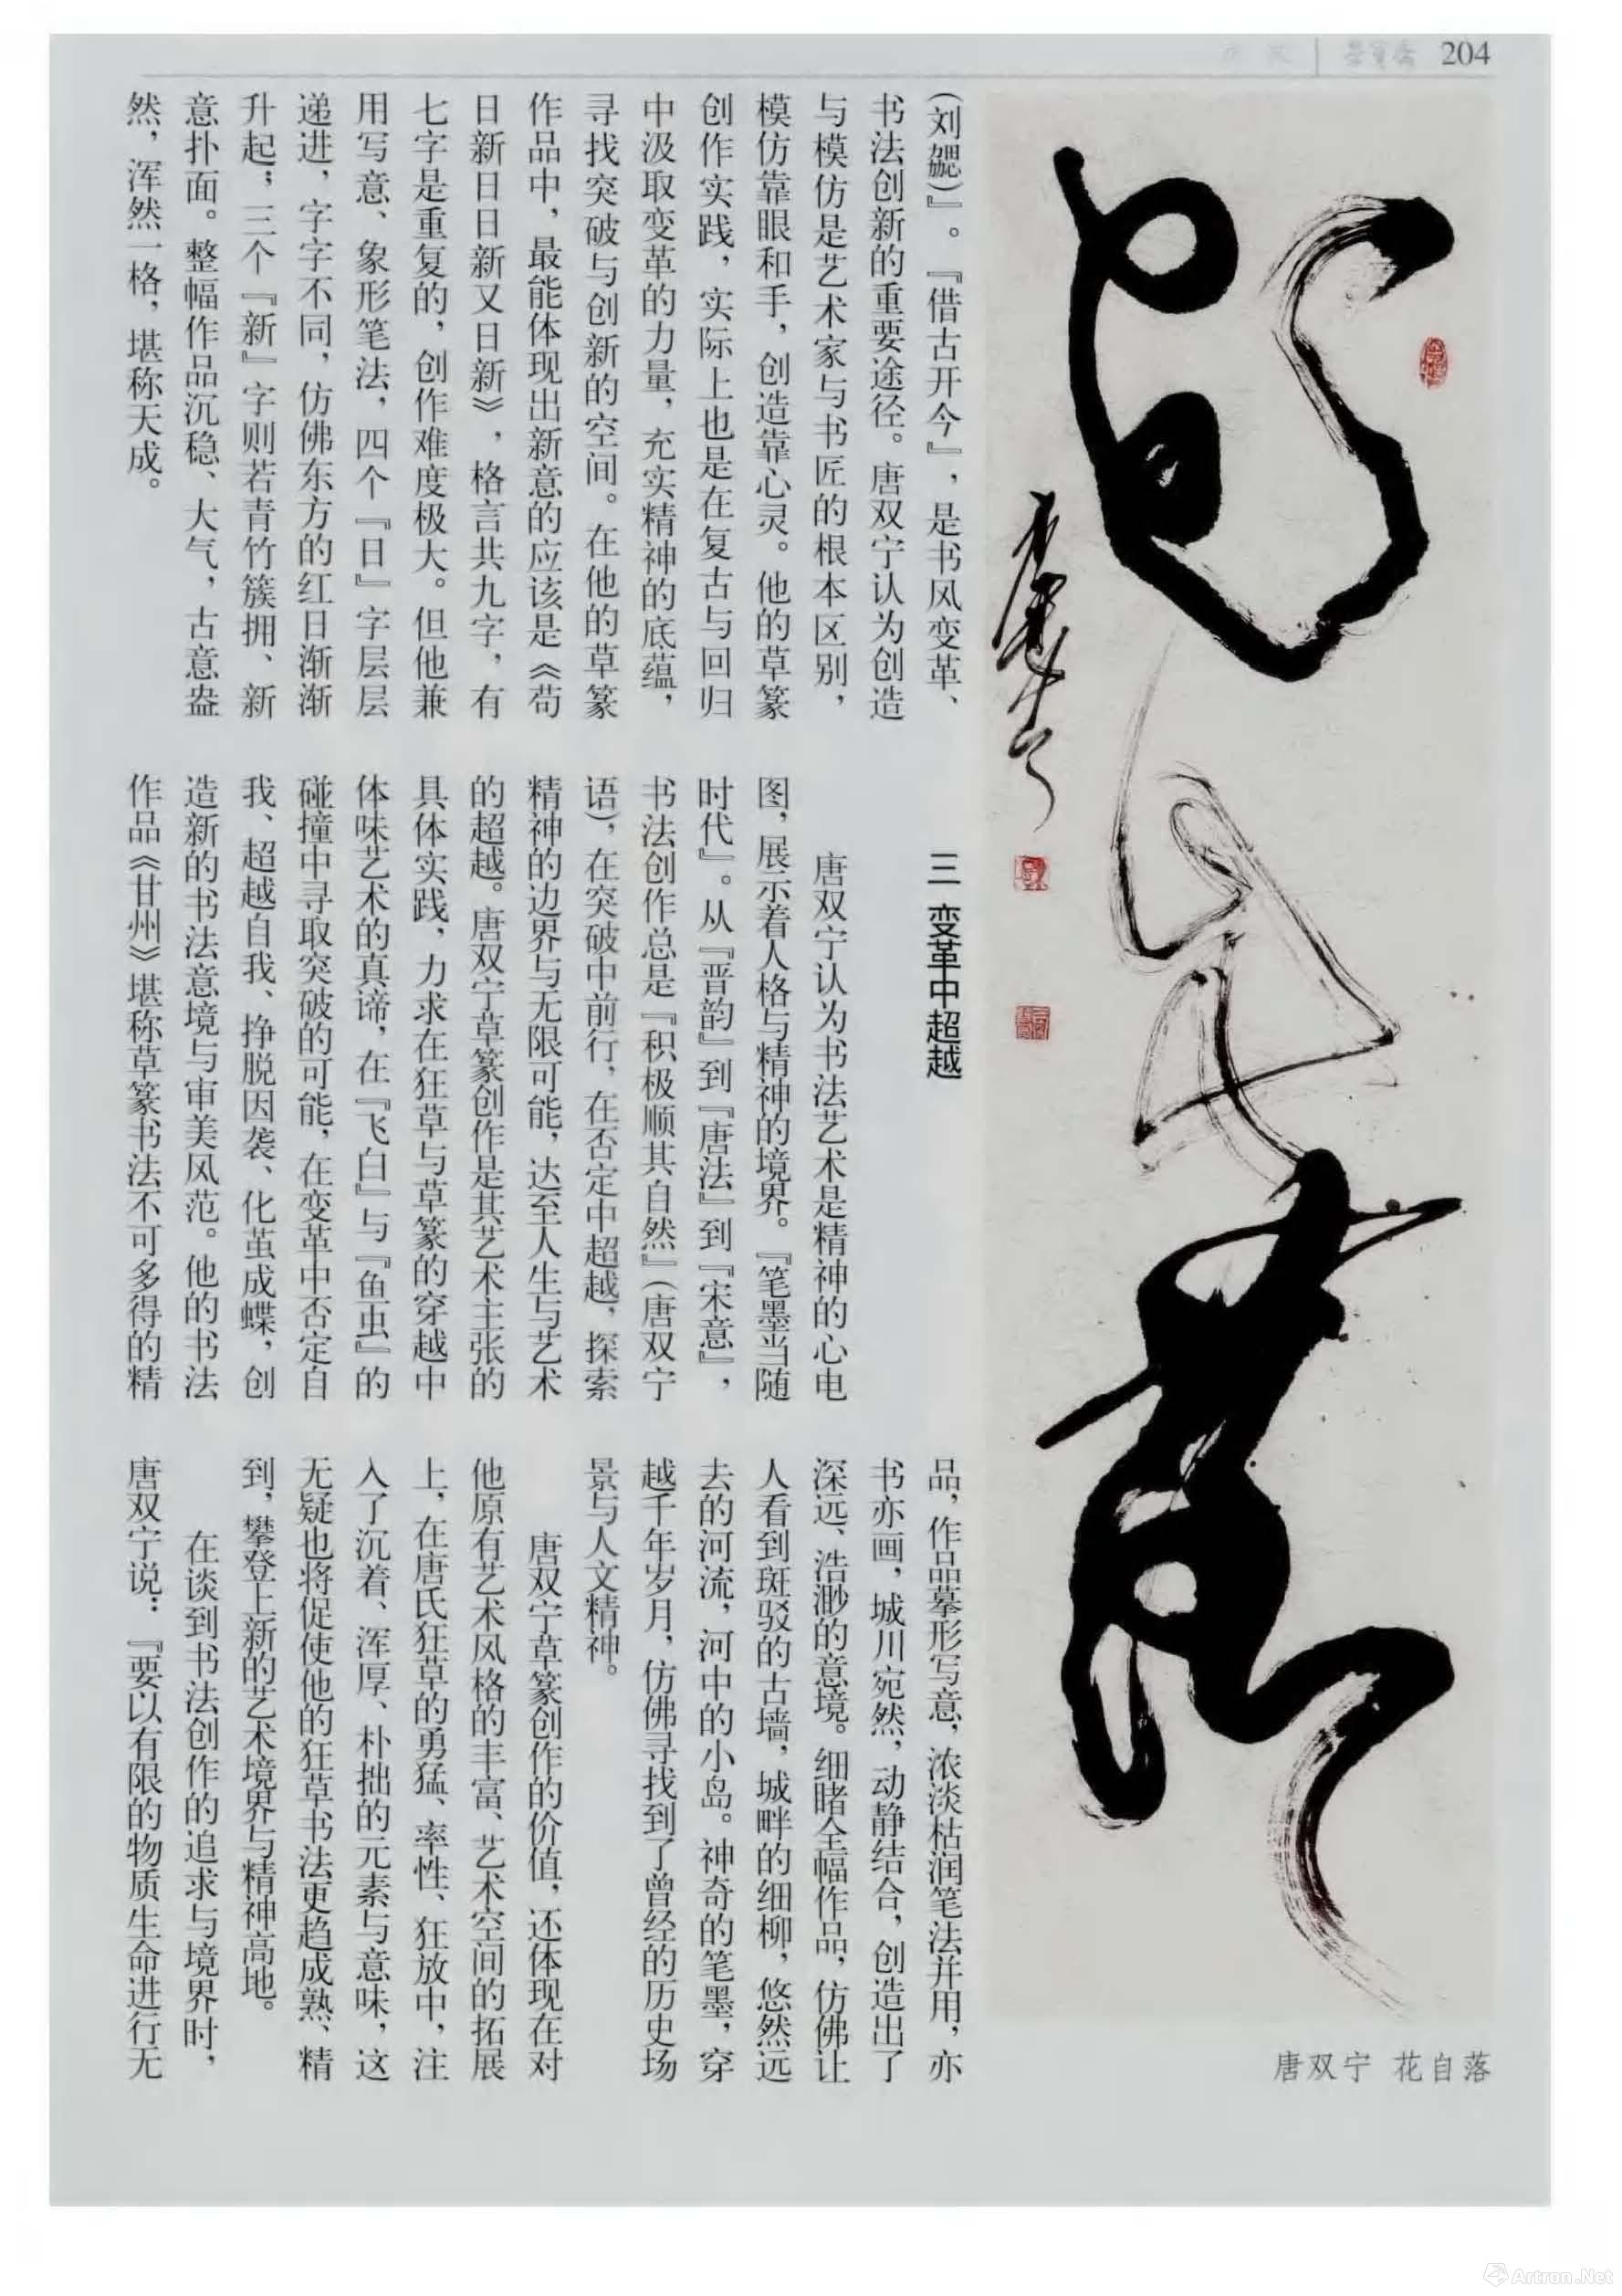 荣宝斋 204
(刘勰)』。『借古开今』，是书风变革、
书法创新的重要途径。唐双宁认为创造
与模仿是艺术家与书匠的根本区别，
模仿靠眼和手，创造靠心灵。他的草篆
创作实践，实际上也是在复古与回归
中汲取变革的力量，充实精神的底蕴，
寻找突破与创新的空间。在他的草篆
作品中，最能体现出新意的应该是《苟
日新日日新又日新》，格言共九字，有
七字是重复的，创作难度极大。但他兼
用写意、象形笔法，四个『日』字层层
递进，字字不同，仿佛东方的红日渐渐
升起；三个『新』字则若青竹簇拥、新
意扑面。整幅作品沉稳、大气，古意盎
然，浑然一格，堪称天成。
三 变革中超越
唐双宁认为书法艺术是精神的心电
图，展示着人格与精神的境界。『笔墨当随
时代』。从『晋韵』到『唐法』到『宋意』，
书法创作总是『积极顺其自然』(唐双宁
语)，在突破中前行，在否定中超越，探索
精神的边界与无限可能，达至人生与艺术
的超越。唐双宁草篆创作是其艺术主张的
具体实践，力求在狂草与草篆的穿越中
体味艺术的真谛，在『飞白』与『鱼虫』的
碰撞中寻取突破的可能，在变革中否定自
我、超越自我、挣脱因袭、化茧成蝶，创
造新的书法意境与审美风范。他的书法
作品《甘州》堪称草篆书法不可多得的精
品，作品摹形写意，浓淡枯润笔法并用，亦
书亦画，城川宛然，动静结合，创造出了
深远、浩渺的意境。细睹全幅作品，仿佛让
人看到斑驳的古墙，城畔的细柳，悠然远
去的河流，河中的小岛。神奇的笔墨，穿
越千年岁月，仿佛寻找到了曾经的历史场
景与人文精神。
唐双宁草篆创作的价值，还体现在对
他原有艺术风格的丰富、艺术空间的拓展
上，在唐氏狂草的勇猛、率性、狂放中，注
入了沉着、浑厚、朴拙的元素与意味，这
无疑也将促使他的狂草书法更趋成熟、精
到，攀登上新的艺术境界与精神高地。
在谈到书法创作的追求与境界时，
唐双宁说：『要以有限的物质生命进行无
花自落
唐双宁
唐双宁 花自落
Artron.Net